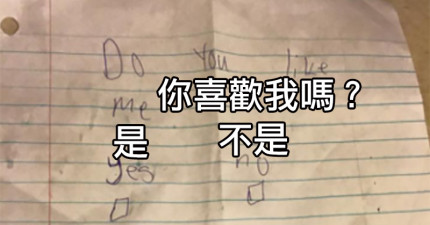 Do you like
你喜歡我嗎？
me
是 不是
yes no